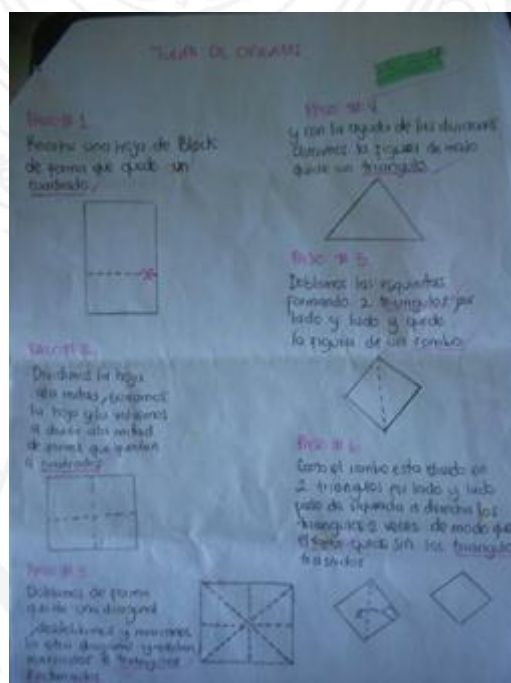 GUIA DE ORIGAMI
PASO # 1
Recortar una hoja de Block
de forma que quede un
cuadrado.
PASO # 2
Dividimos la hoja
a la mitad,
la hoja y la volvemos
a dividir a la mitad
de forma que quedan
4 cuadrados
PASO # 3
Doblamos de forma
quede una diagonal
desdoblamos y marcamos
la otra diagonal
triangulos
Rectangulos
PASO # 4
y con la ayuda de las divisiones
la figura de modo
quede un triangulo.
PASO # 5
Doblamos las esquinitas
formando 2 triangulos por
lado y lado y quede
la figura de un rombo.
PASO # 6
Como el rombo esta divido en
2 triangulos por lado y lado
paso de izquierda a derecha los
triangulos 2 veces de modo que
el quede sin los triangulos